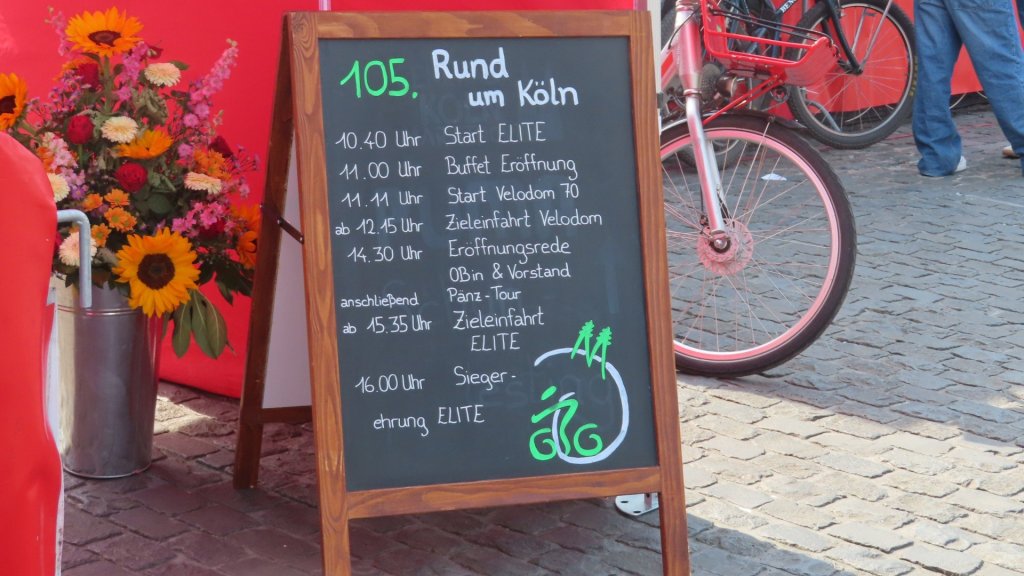 105. Rund
um Köln
10.40 Uhr Start ELITE
11.00 Uhr Buffet Eröffnung
11.11 Uhr Start Velodom 70
ab 12.15 Uhr Zieleinfahrt Velodom
14.30 Uhr Eröffnungsrede
OBin & Vorstand
anschließend Pänz-Tour
ab 15.35 Uhr Zieleinfahrt
ELITE
16.00 Uhr Sieger-
ehrung ELITE